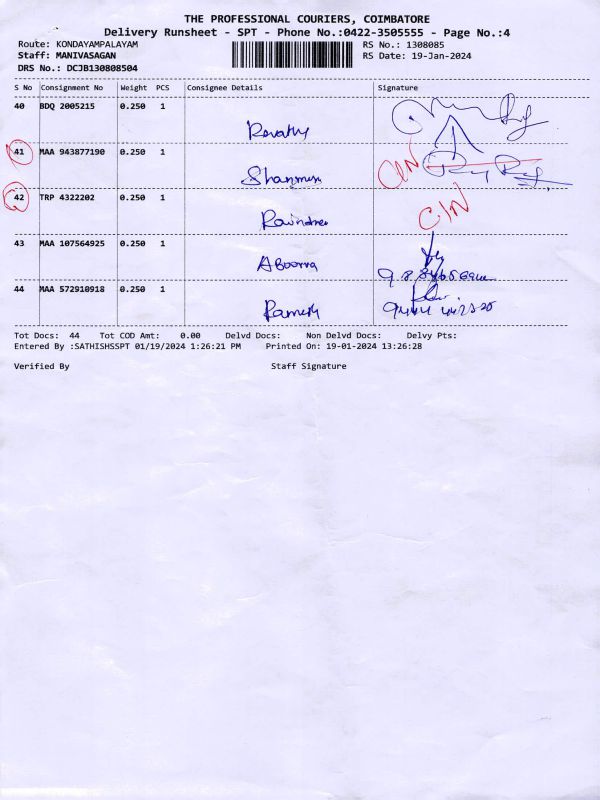 THE PROFESSIONAL COURIERS, COIMBATORE
Delivery Runsheet - SPT - Phone No.:0422-3505555 - Page No.:4
Route: KONDAYAMPALAYAM RS No.: 1308085
Staff: MANIVASAGAN RS Date: 19-Jan-2024
DRS No.: DCJB130808504
S No Consignment No Weight PCS Consignee Details Signature
40 BDQ 2005215 0.250 1
Revathy
41 MAA 943877190 0.250 1
CIN
42 TRP 4322202 0.250 1
CIN
43 MAA 107564925 0.250 1
Aboorva
44 MAA 572910918 0.250 1
Ramesh
Tot Docs: 44 Tot COD Amt: 0.00 Delvd Docs: Non Delvd Docs: Delvy Pts:
Entered By :SATHISHSSPT 01/19/2024 1:26:21 PM Printed On: 19-01-2024 13:26:28
Verified By Staff Signature